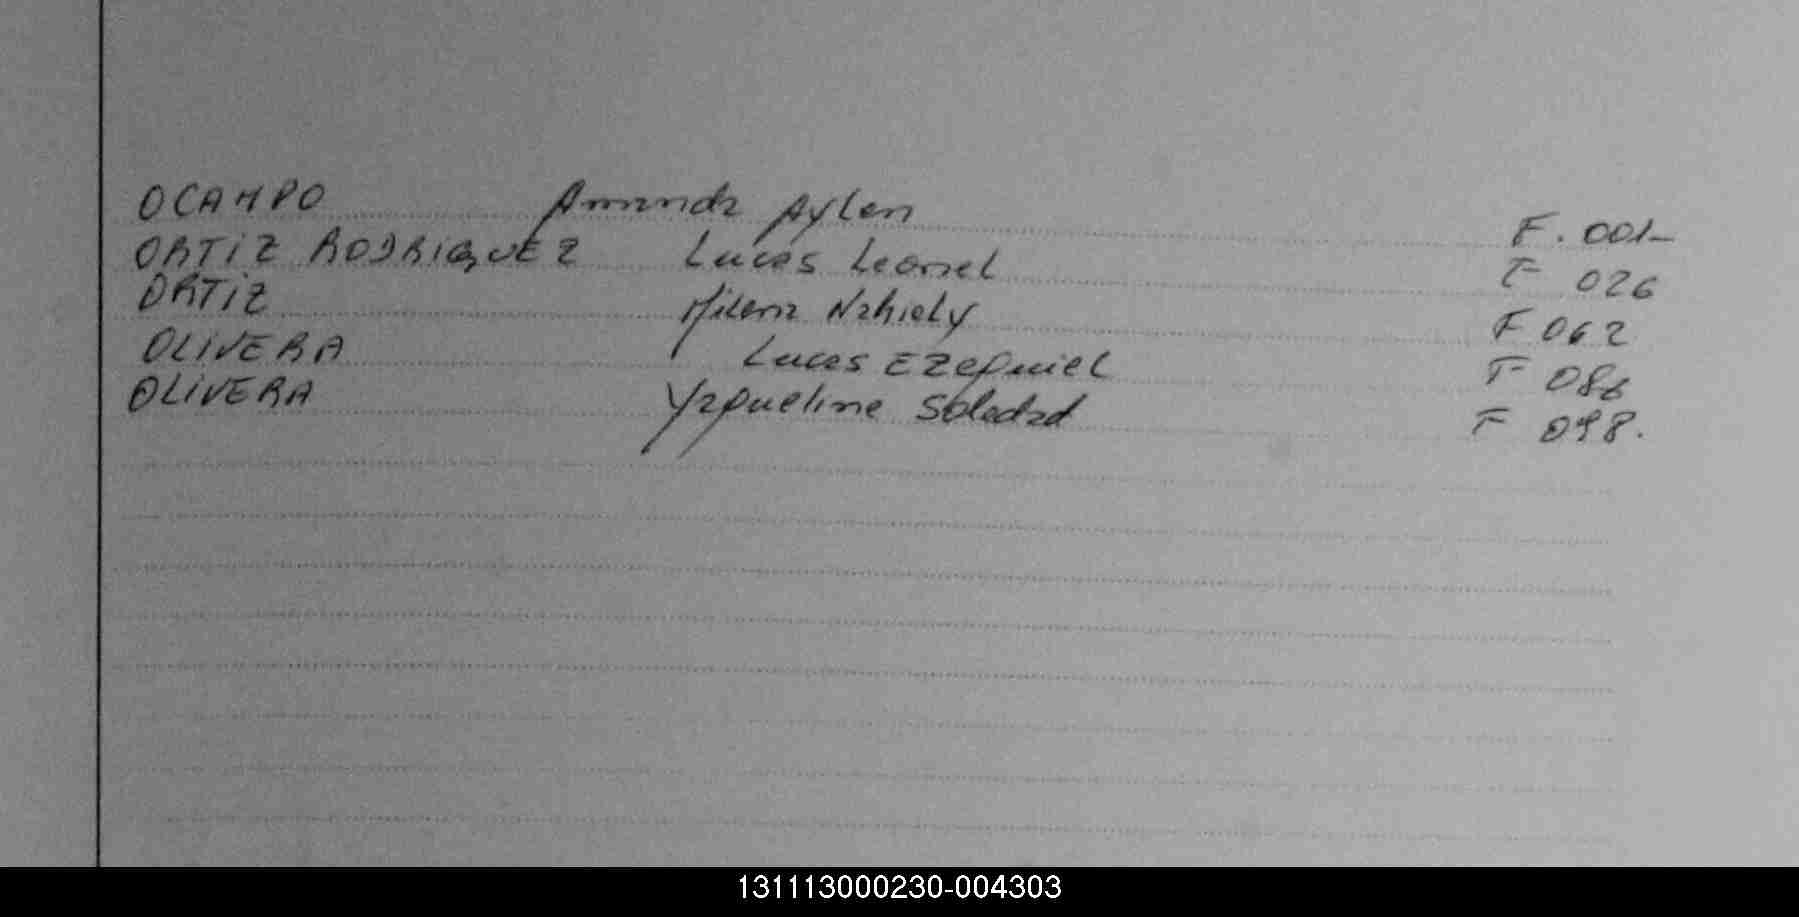 OCAMPO Amanda Aylen F. 001-
ORTIZ RODRIGUEZ Lucas Leonel F 026
ORTIZ Milena Nahiely F 062
OLIVERA Lucas Ezequiel F 086
OLIVERA Yaqueline Soledad F 098.
131113000230-004303